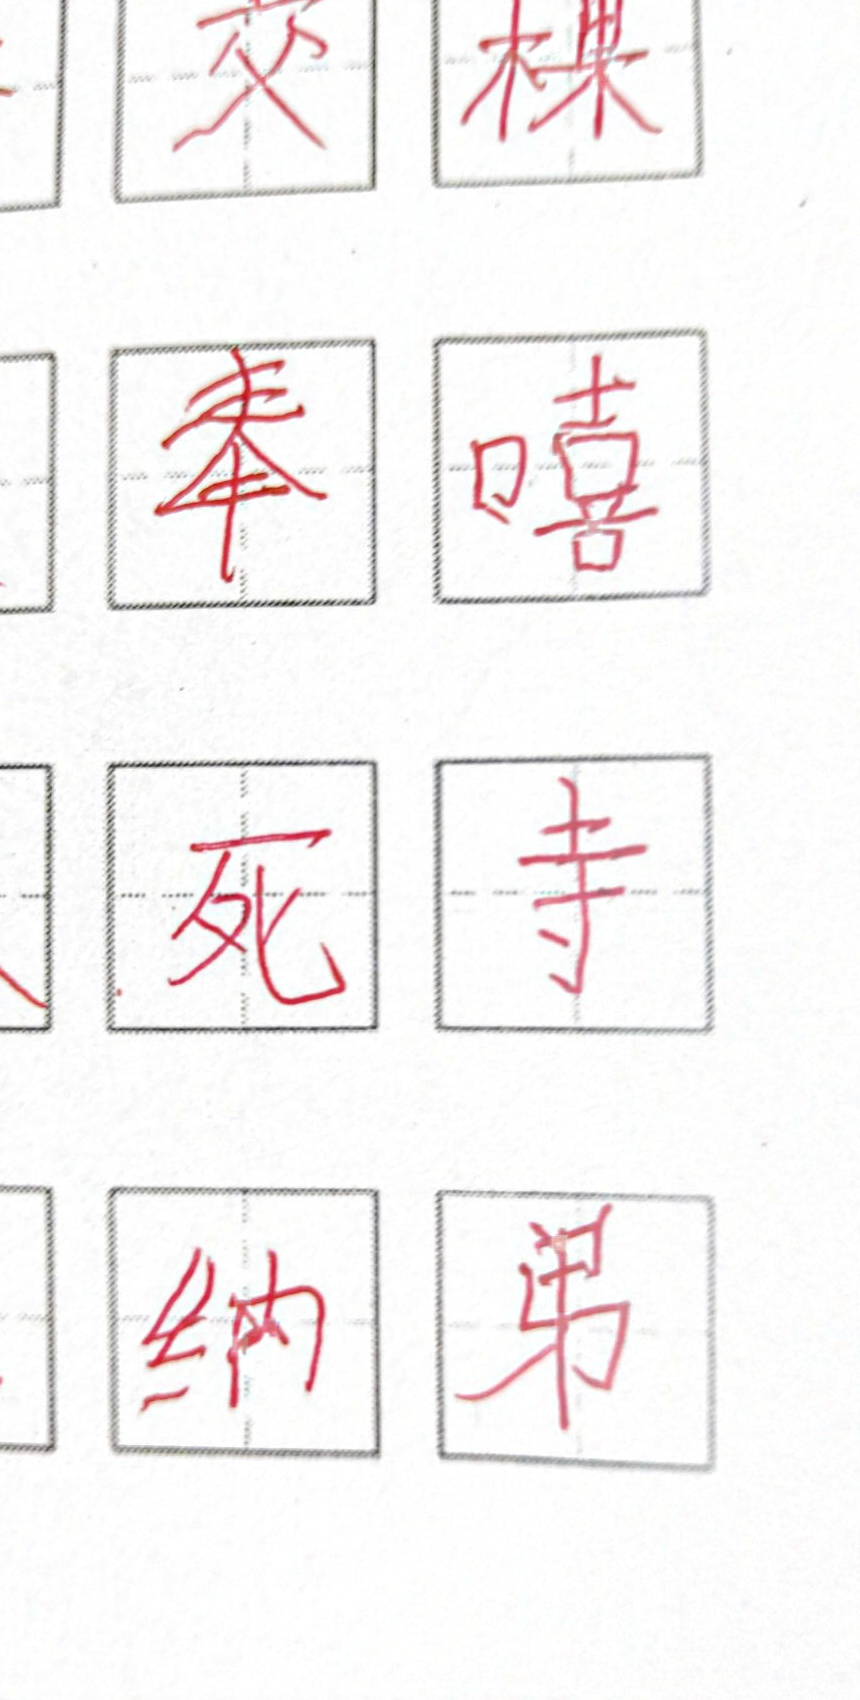 交棵
奉嘻
死寺
纳弟